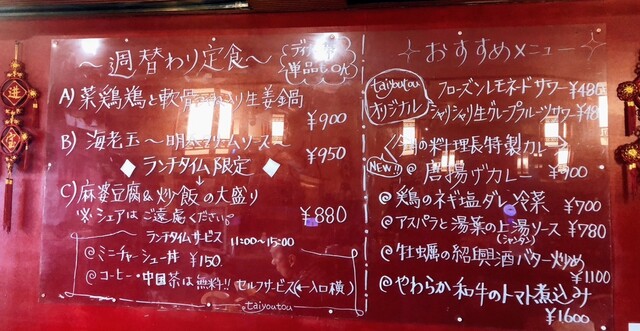 ～週替わり定食～
ディナー 単品もOK
A) 菜鶏鶏と軟骨 入り生姜鍋
¥900
B) 海老玉～明太 ソース～
¥950
ランチタイム限定
C) 麻婆豆腐&炒飯の大盛り
※シェアはご遠慮ください。
¥880
ランチタイムサービス 11:00～15:00
@ミニチャーシュー丼 ¥150
@コーヒー・中国茶は無料!! セルフサービス(←入口横)
taiyoutou
おすすめメニュー
taiyoutou オリジナル
フローズンレモネードサワー ¥480
シャリシャリ生グレープフルーツサワー
料理長特製カレー〉
NEW!!
唐揚げカレー
@鶏のネギ塩ダレ冷菜 ¥700
@アスパラと湯葉の上湯ソース ¥780
(シャンタン)
@牡蠣の紹興酒バター炒め
¥1100
@やわらか和牛のトマト煮込み
¥1600
進
宝